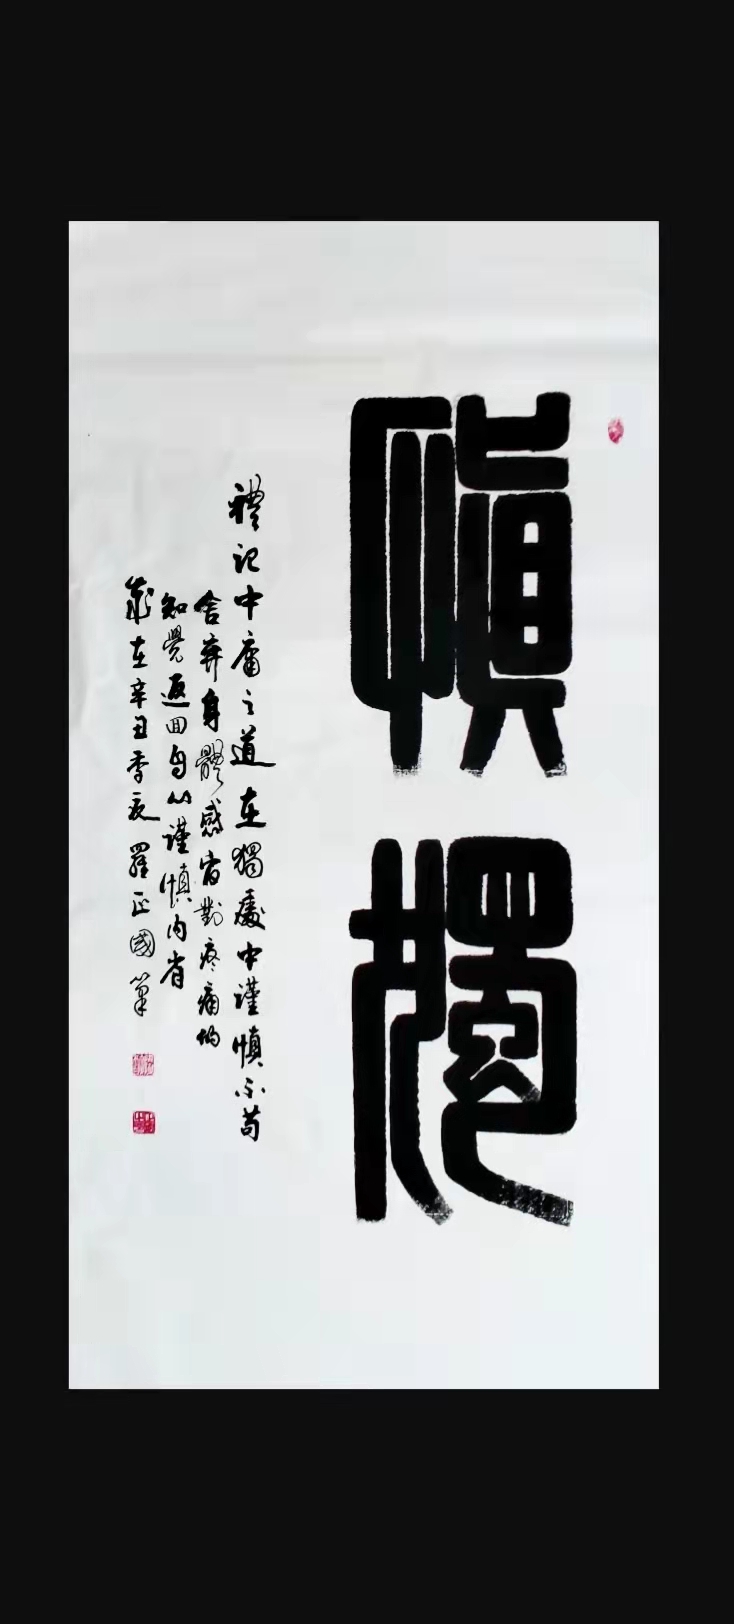 慎獨
禮記中庸之道在獨處中謹慎不苟
舍棄身體感官對疼痛的
知覺返回自心謹慎内省
歲在辛丑季夏羅正國篆